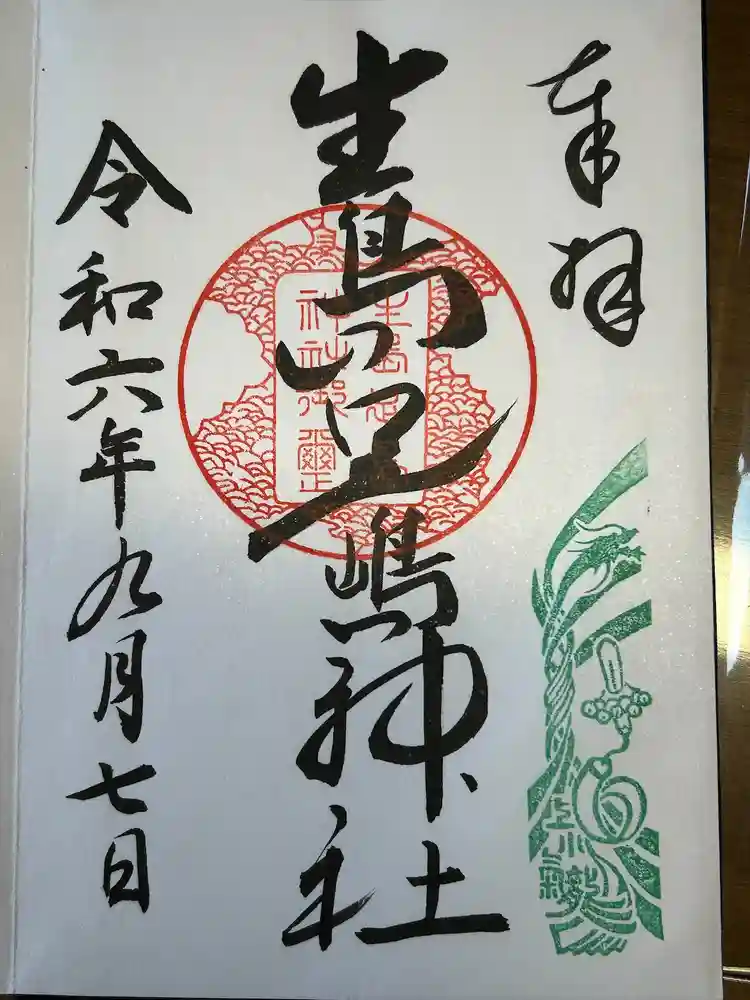 奉拝
生島足嶋神社
生島足島
神社御璽
令和六年九月七日